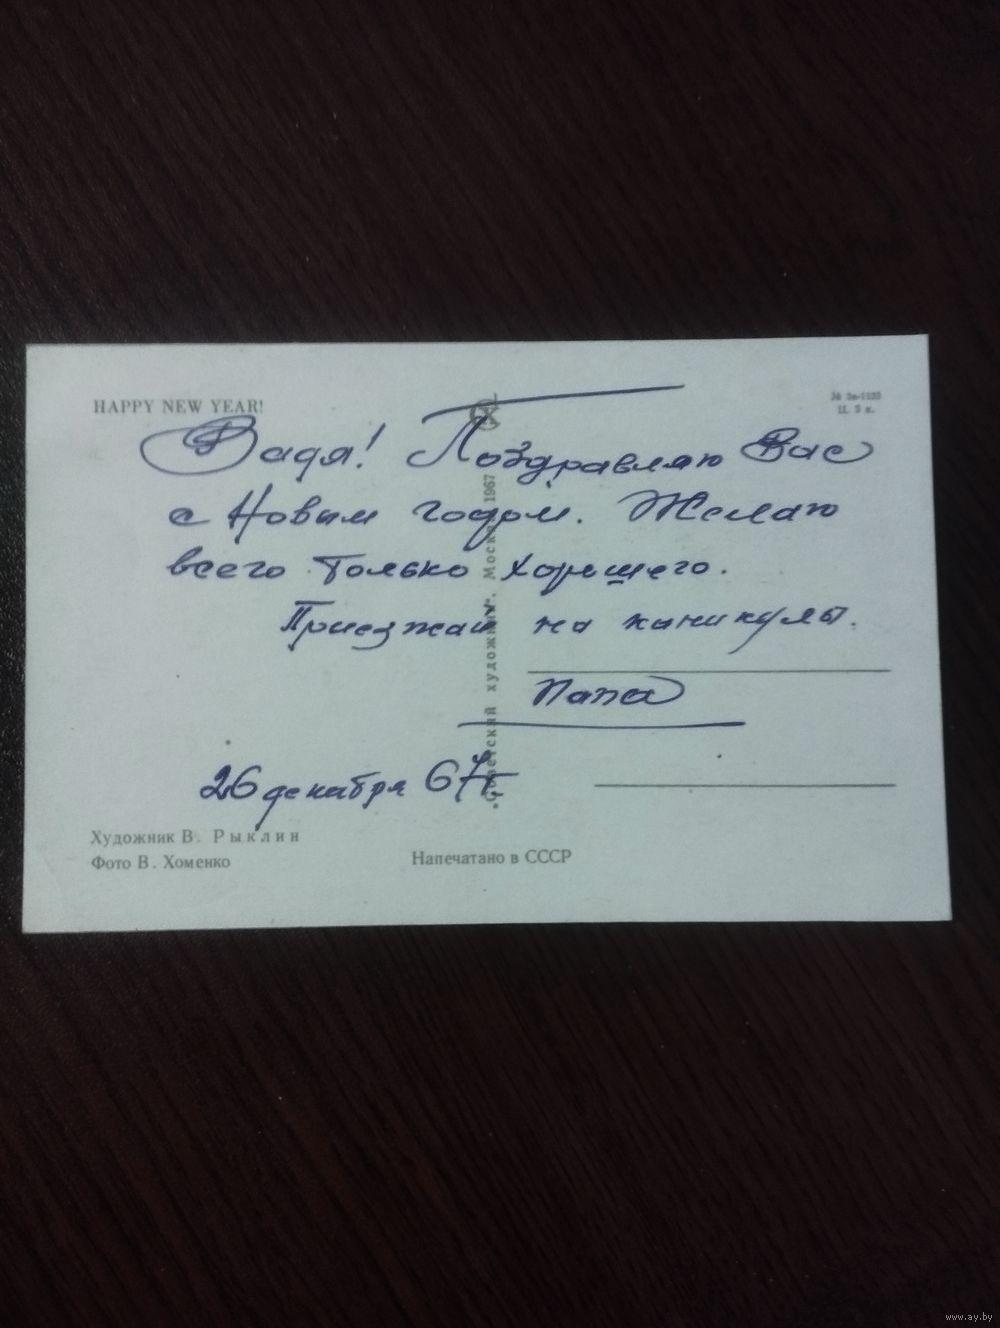 HAPPY NEW YEAR!
Ц. 5 к.
Вадя! Поздравляю Вас
с Новым годом. Желаю
всего только хорошего.
Приезжай на каникулы.
Папа
26 декабря 67г
"Советский художник". Москва 1967
Художник В. Рыклин
Фото В. Хоменко
Напечатано в СССР
www.ay.by